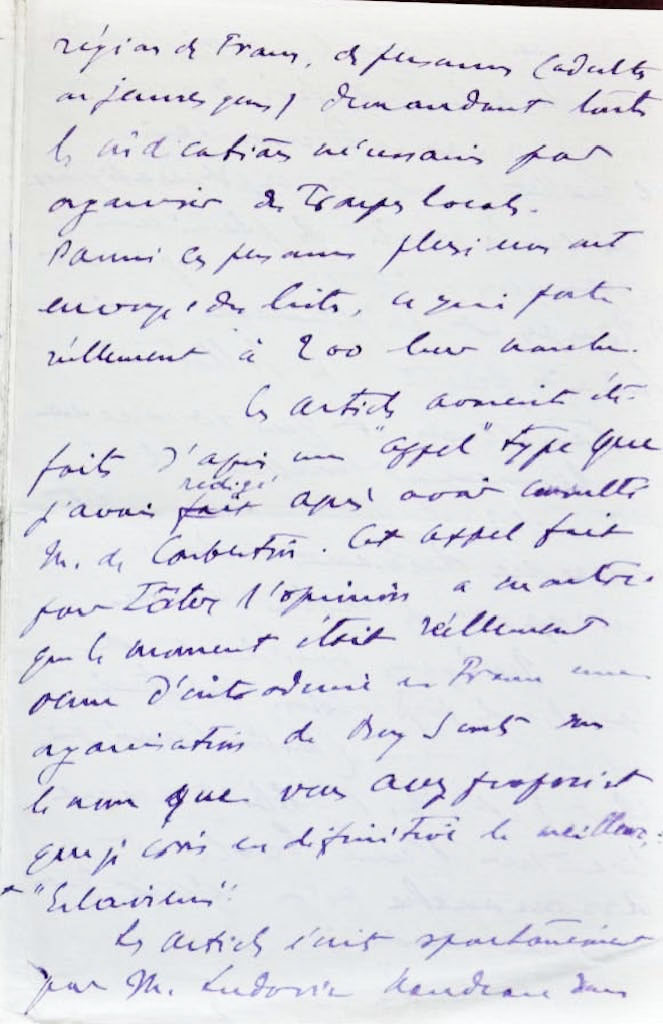 région de France, de personnes (adultes
ou jeunes gens) demandant toutes
les indications nécessaires pour
organiser des Troupes locales.
Parmi ces personnes plusieurs ont
envoyé des listes, ce qui porte
réellement à 200 leur nombre.
Ces articles avaient été
faits d'après un "appel" type que
j'avais fait rédigé après avoir consulté
M. de Coubertin. Cet appel fait
pour tâter l'opinion a montré
que le moment était réellement
venu d'introduire en France une
organisation de Boy Scouts sous
le nom que vous avez proposé et
que je crois en définitive le meilleur:
"Eclaireurs".
Les articles écrits spontanément
par M. Ludovic Naudeau dans